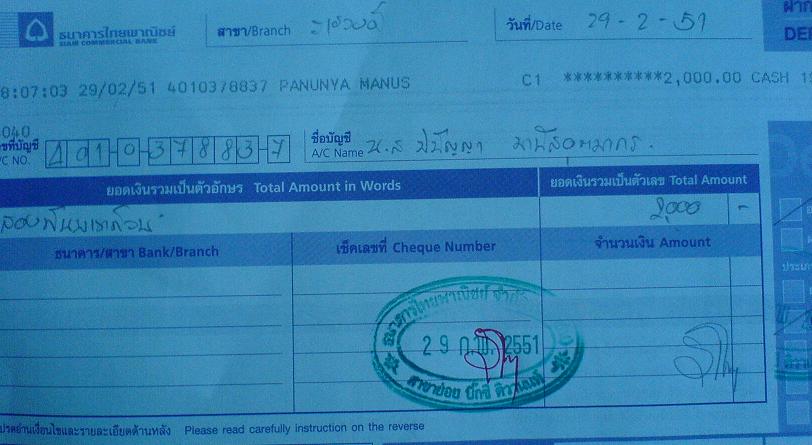 ธนาคารไทยพาณิชย์
SIAM COMMERCIAL BANK
สาขา/Branch
วันที่/Date 29-2-51
ฝาก
DE
8:07:03 29/02/51 4010378837 PANUNYA MANUS C1 **********2,000.00 CASH
040
ขที่บัญชี
/C NO. 401-0-37883-7
ชื่อบัญชี
A/C Name น.ส ปัญญา
ยอดเงินรวมเป็นตัวอักษร Total Amount in Words
ยอดเงินรวมเป็นตัวเลข Total Amount
สองพันบาทถ้วน
2,000 -
ธนาคาร/สาขา Bank/Branch
เช็คเลขที่ Cheque Number
จำนวนเงิน Amount
ประเภ
ธนาคารไทยพาณิชย์ จำกัด
29 ก.พ. 2551
สาขาย่อย บิ๊กซี ติวานนท์
ปรดอ่านเงื่อนไขและรายละเอียดด้านหลัง Please read carefully instruction on the reverse